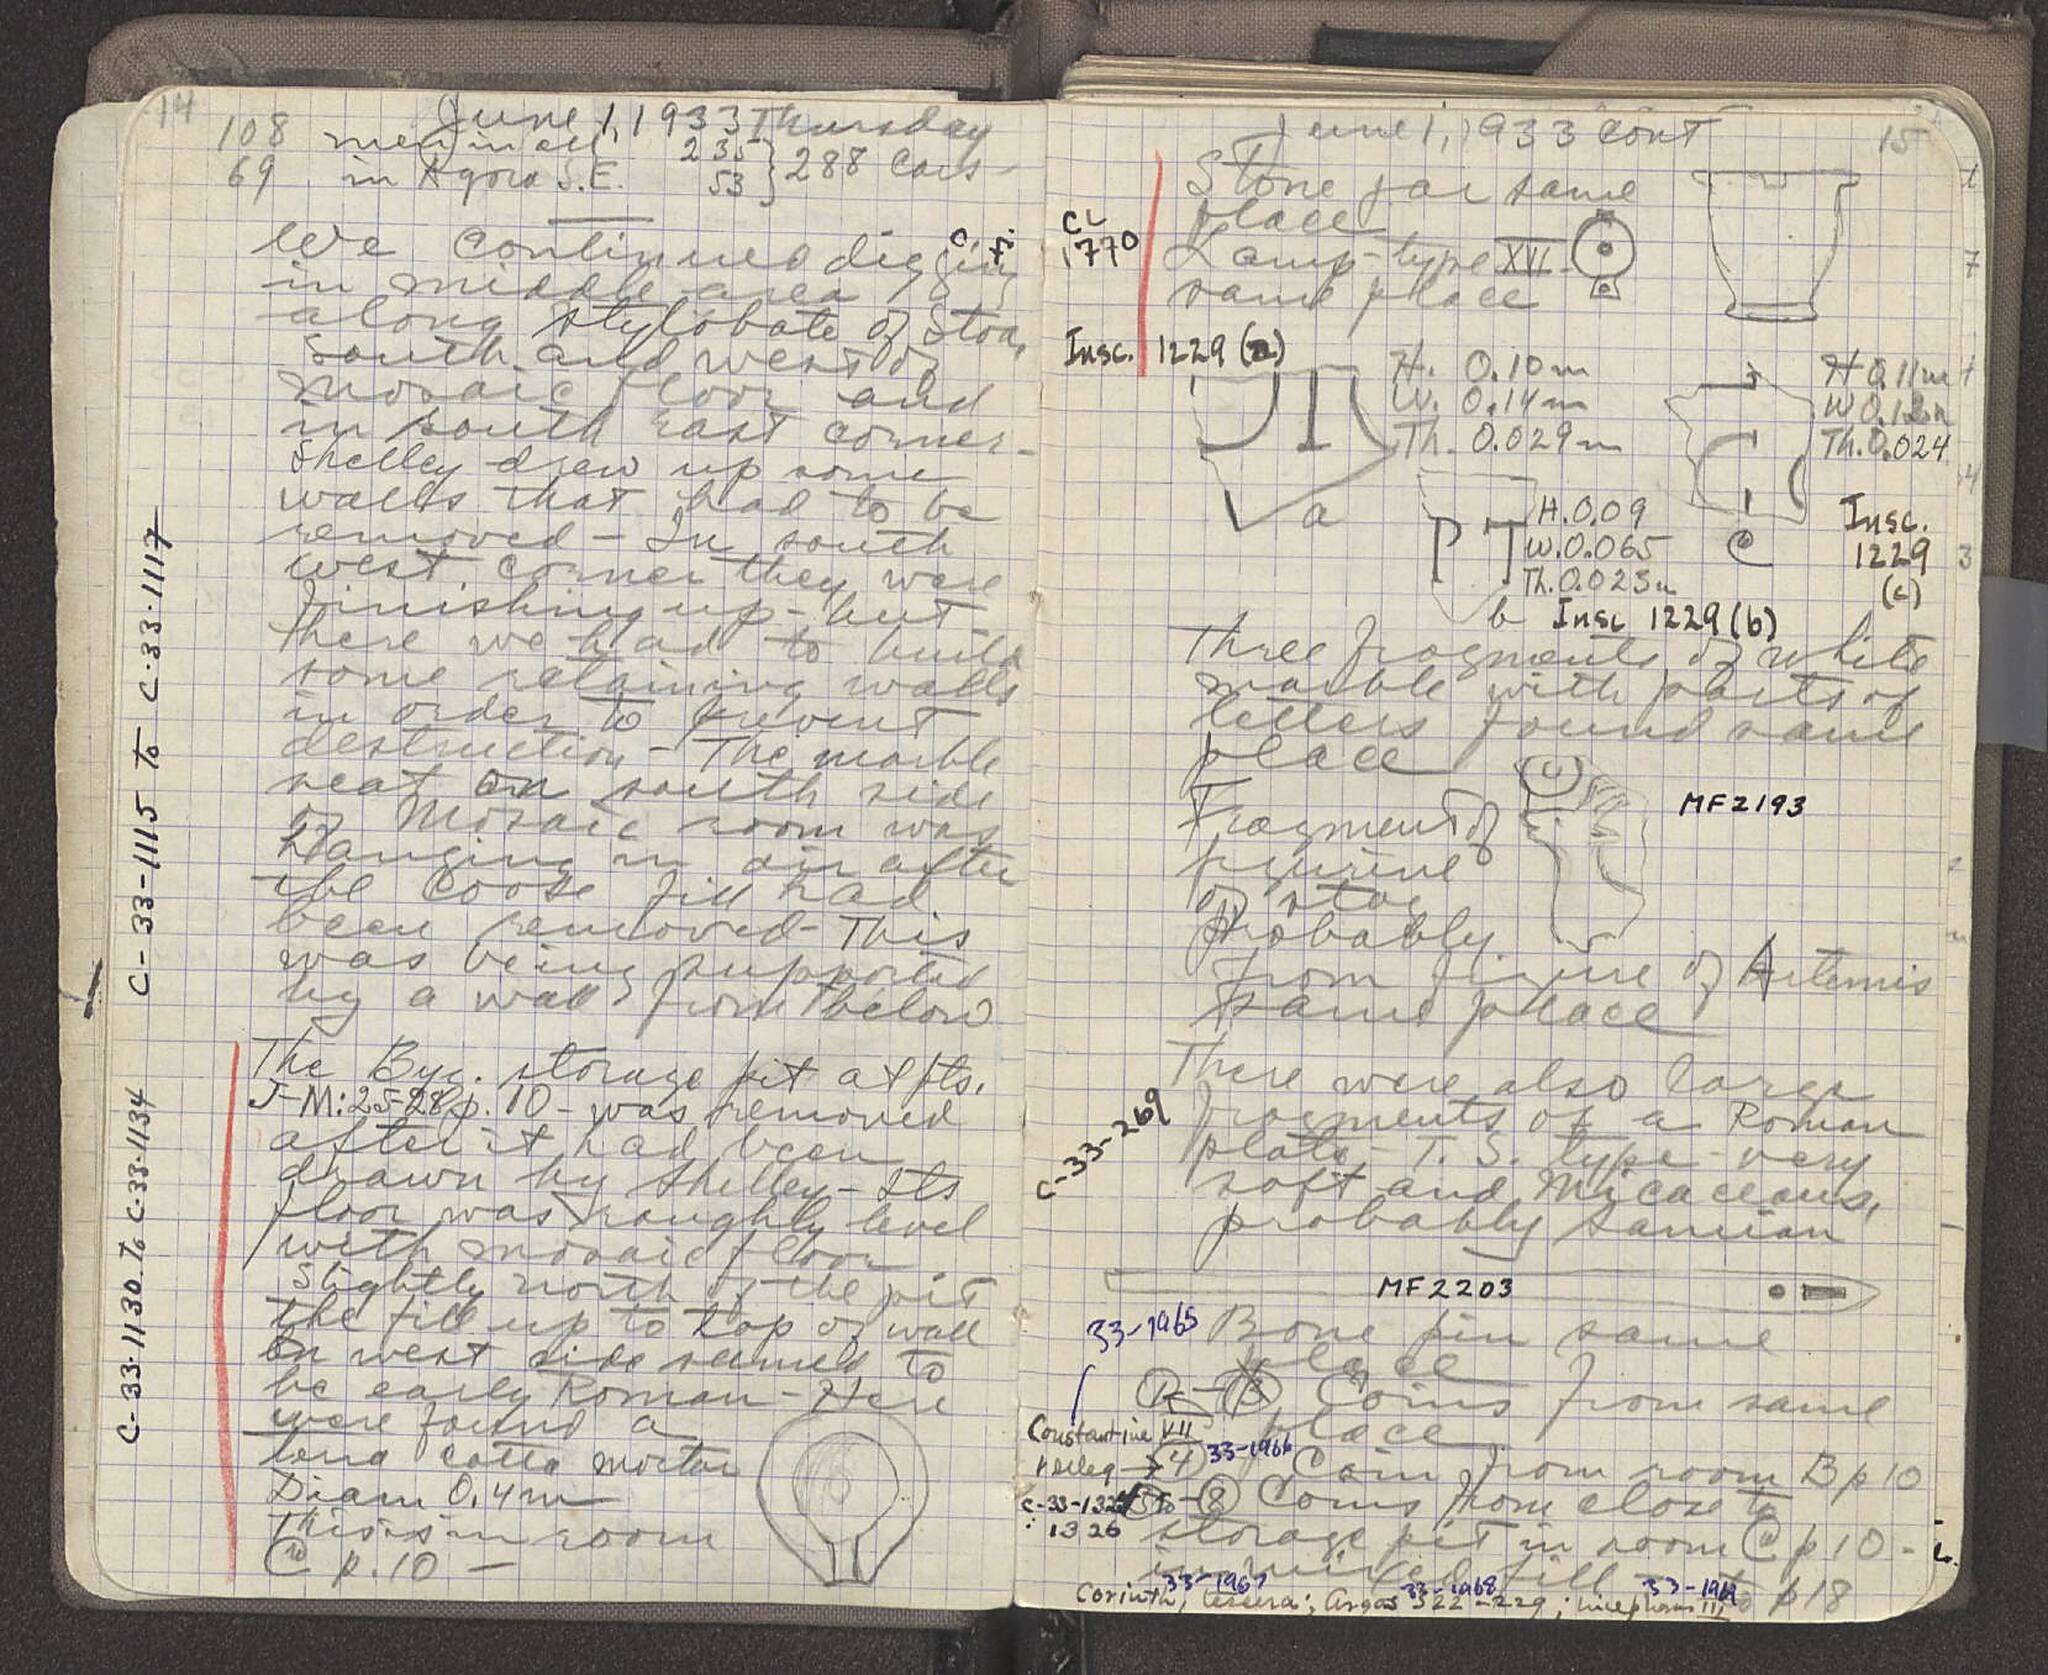 14
June 1, 1933 Thursday
108 men in all 235 } 288 Cars
69 in Agora S.E. 53
We continued digging
in middle area,
along stylobate of Stoa,
South and west of
Mosaic floor and
in south east corner-
Shelley drew up some
walls that had to be
removed - In south
west corner they were
finishing up - but
there we had to build
some retaining walls
in order to prevent
destruction - The marble
seat on south side
of Mosaic room was
Hanging in air after
the loose fill had
been removed - This
was being supported
by a wall from below
The Byz. storage pit at pts.
J-M:25-28 p. 10 - was removed
after it had been
drawn by Shelley - Its
floor was roughly level
with mosaic floor
Slightly north of the pit
the fill up to top of wall
on west side seemed to
be early Roman - Here
were found a
terra cotta mortar
Diam 0.4m
This is in room
C p. 10 -
C-33-1115 to C-33-1117
C-33-1130 to C-33-1134
June 1, 1933 cont 15
Stone jar same
place
CL
1770
Lamp - type XVI -
same place
Insc. 1229 (a)
H. 0.10m
W. 0.14m
Th. 0.029m
a
H 0.11m
W 0.12m
Th. 0.024
C
Insc.
1229
(c)
H. 0.09
W. 0.065
Th. 0.025m
b Insc 1229 (b)
Three fragments of white
marble with parts of
letters found same
place
Fragment of
figurine
of stag
Probably
from figure of Artemis
same place
MF2193
There were also large
fragments of a Roman
plate - T. S. type - very
soft and Micaceous,
probably Samian
C-33-269
MF2203
33-1965
Bone pin same
place
Coins from same
place
Constantine VII
4 33-1966 Coin from room B p 10
8 Coins from close to
1326
storage pit in room C p 10 -
in mixed fill to p 18
33-1967 33-1968 33-1969
Corinth, tessera; Argos 322-229; Nicephorus III